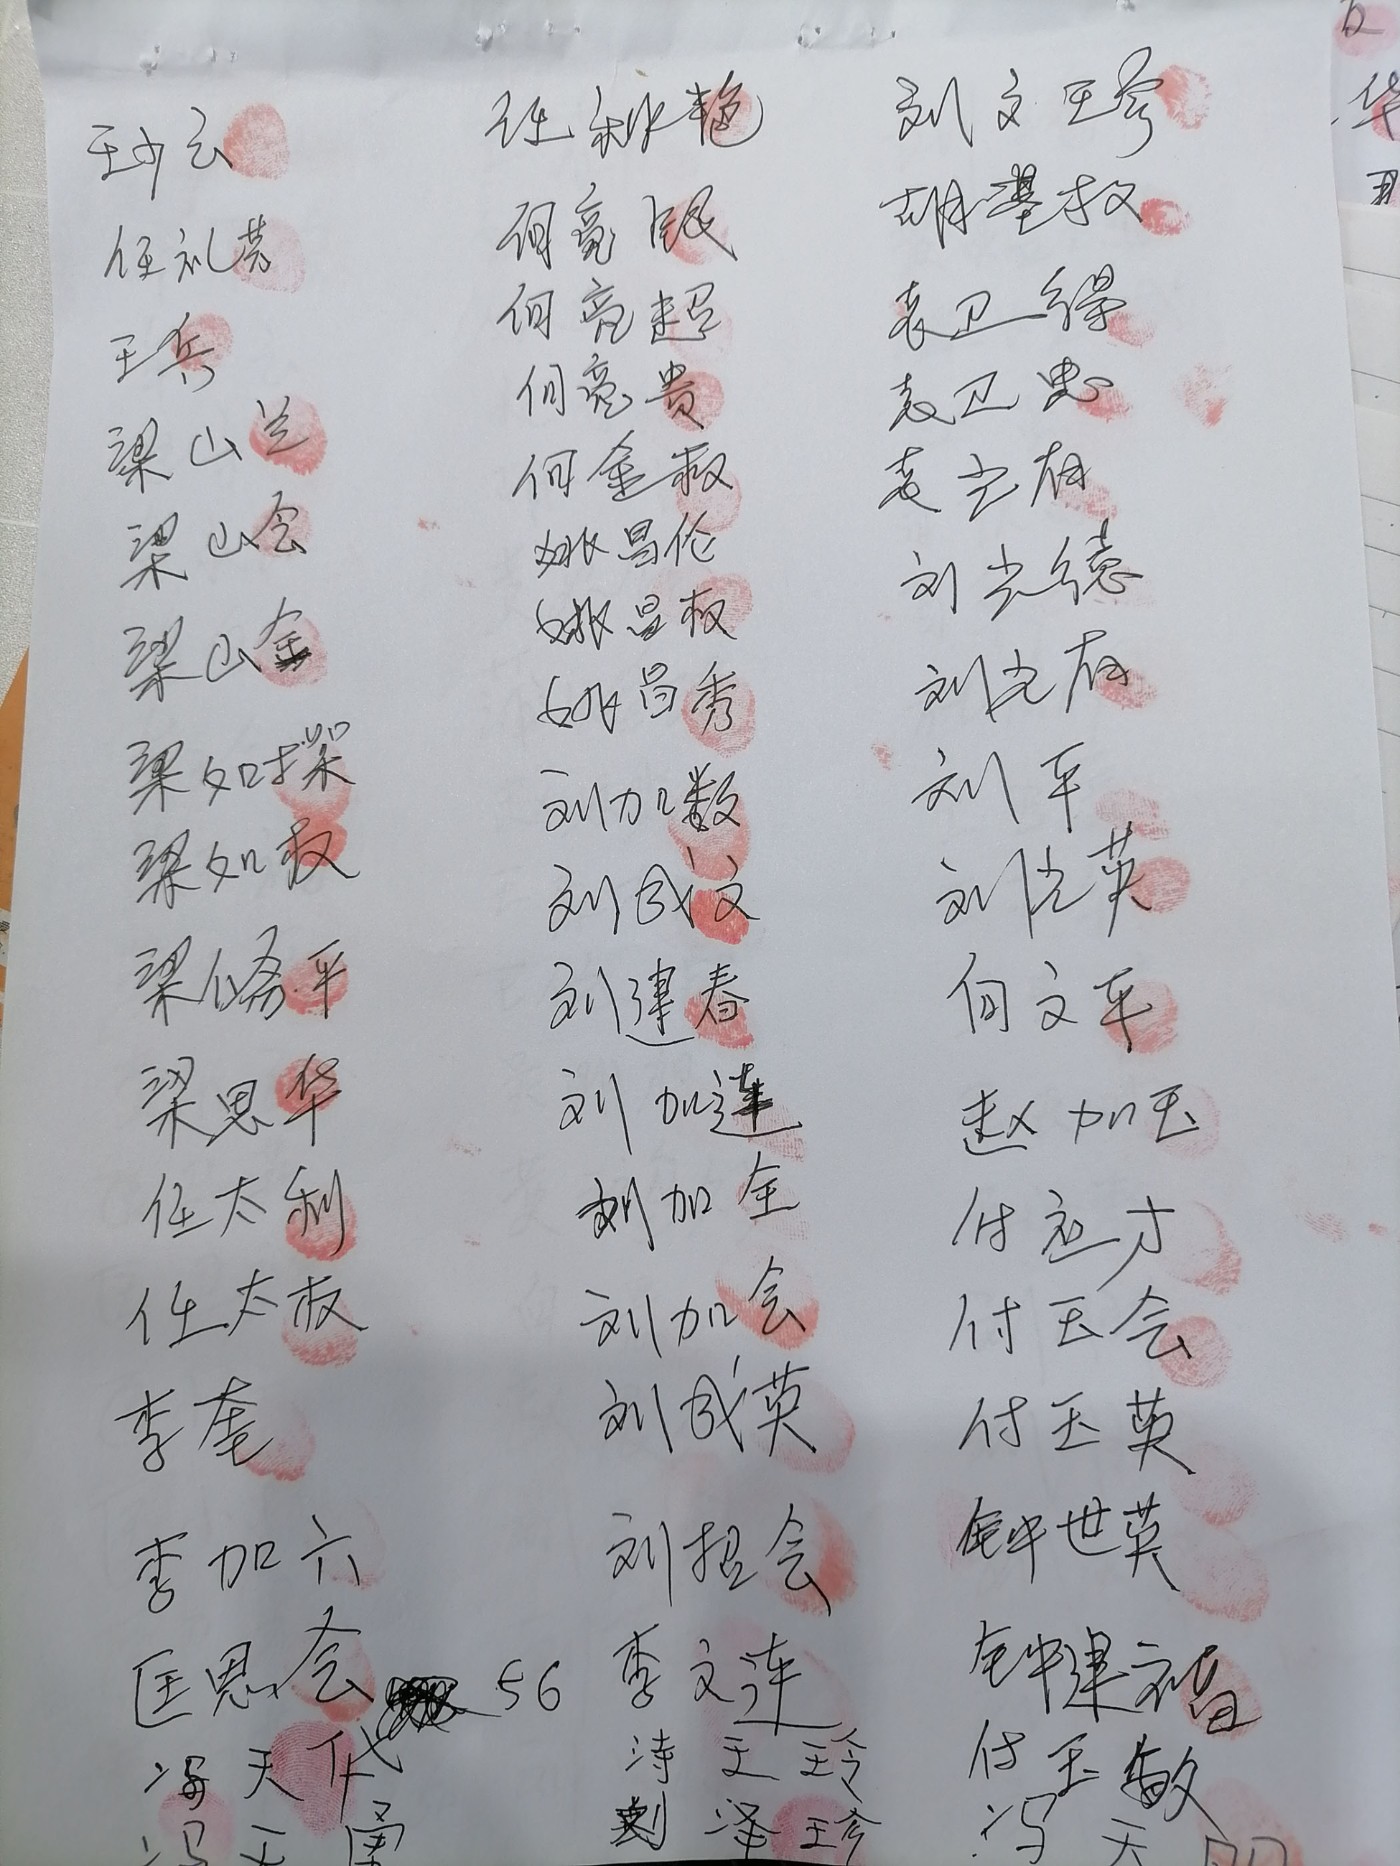 王少云
任礼芳
王兵
梁山兰
梁山会
梁山金
梁如
梁如权
梁修平
梁思华
任太利
任太权
李奎
李加六
匡思会 56
冯天代
冯天
任秋艳
何亮民
何亮超
何亮贵
何金权
姚昌伦
姚昌权
姚昌秀
刘加数
刘成文
刘建春
刘加莲
刘加全
刘加会
刘成英
刘招会
李文连
王玲
刘泽珍
刘文珍
胡基权
袁卫得
袁卫忠
袁光友
刘光德
刘光友
刘平
刘光英
何文平
赵加玉
付应才
付玉会
付玉英
钟世英
钟建福
付玉敏
冯天明
华